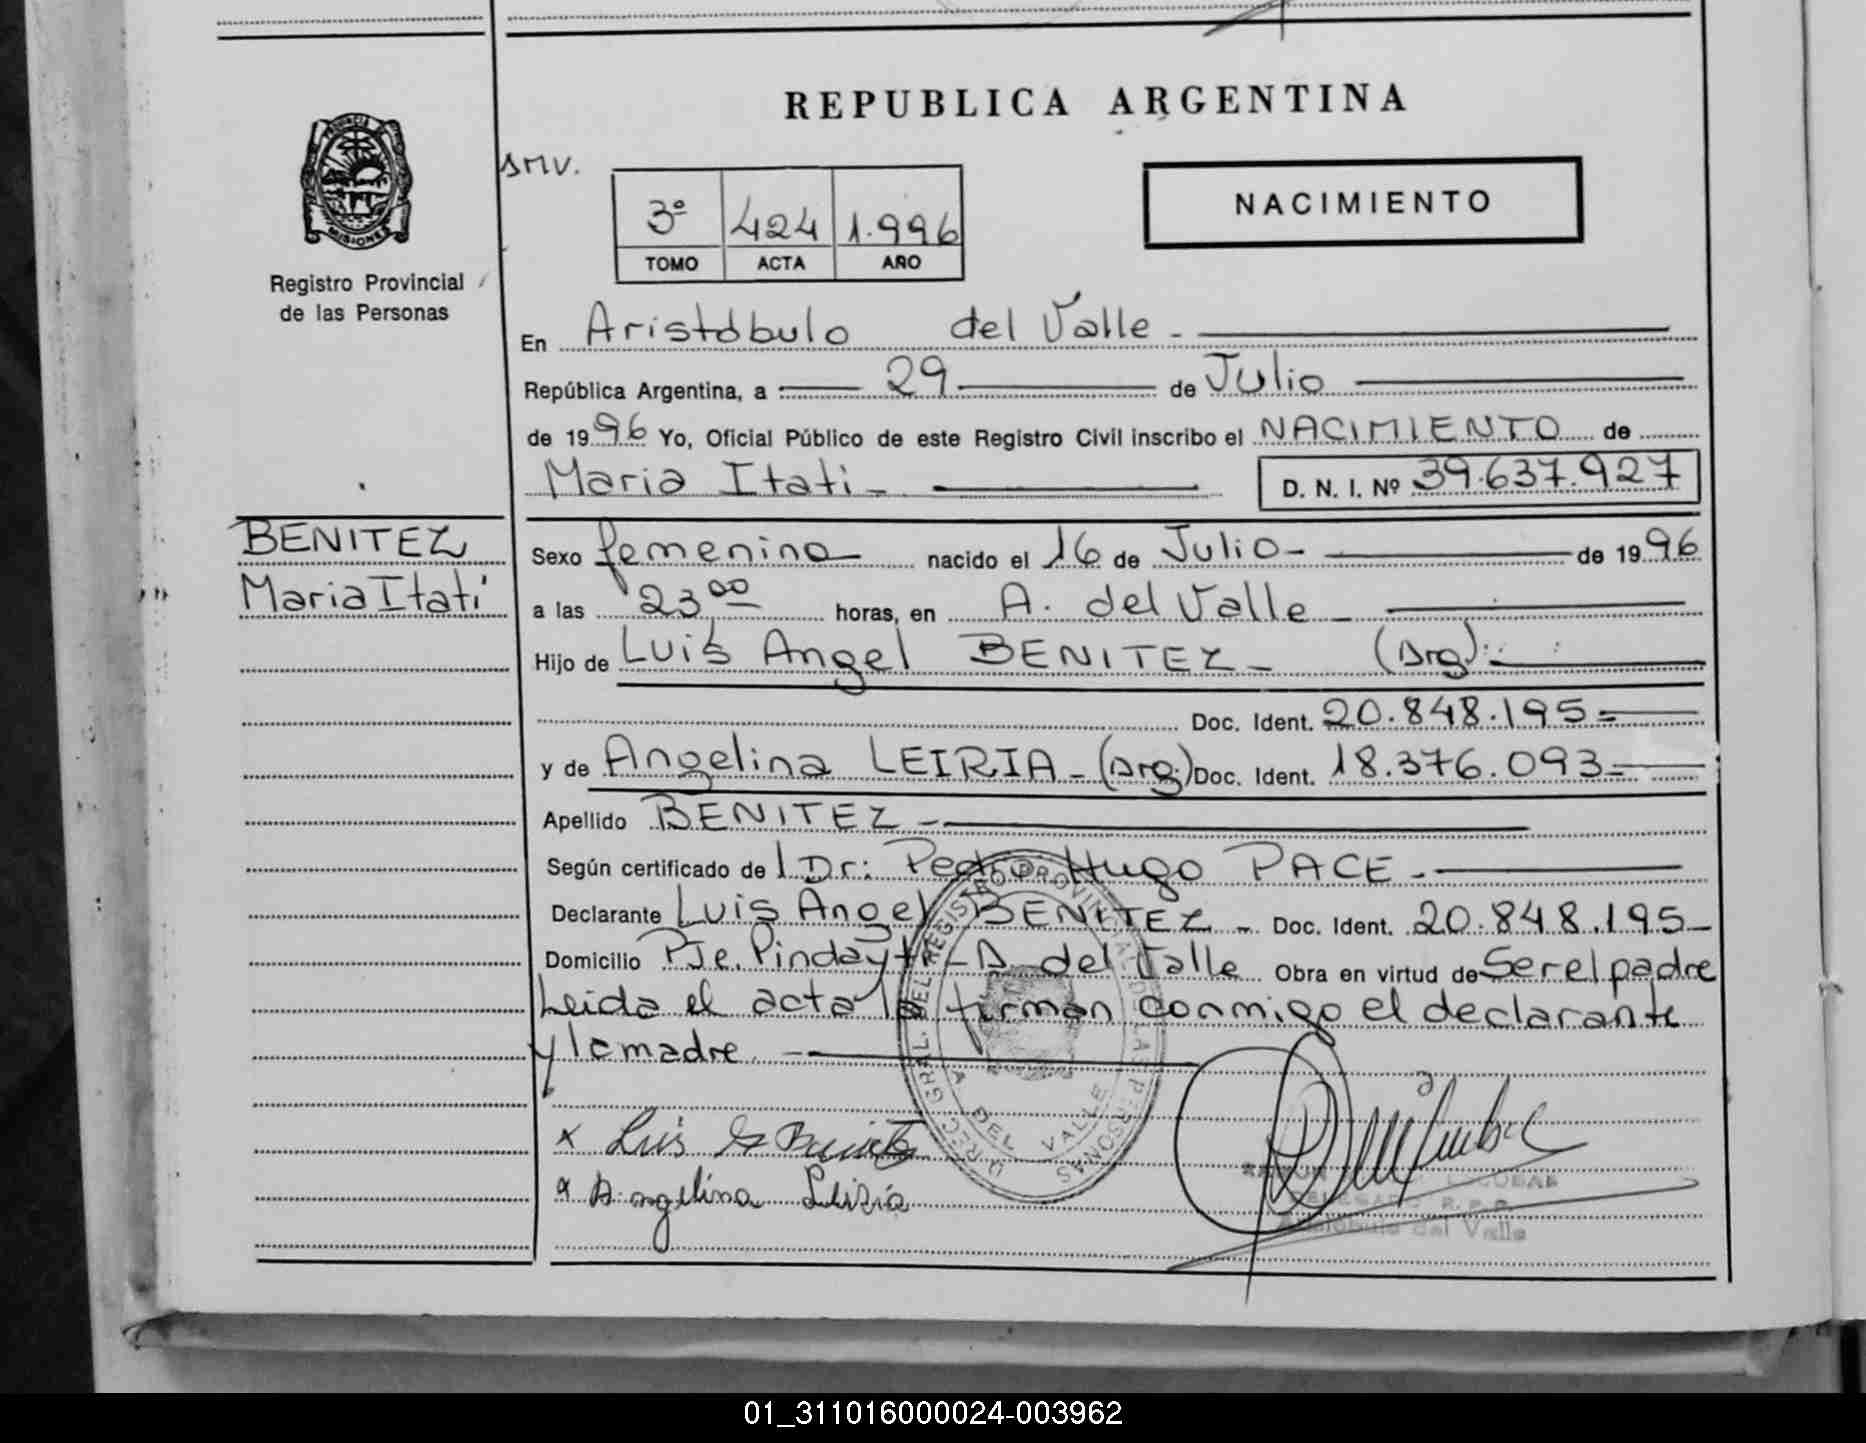 REPUBLICA ARGENTINA
PROVINCIA DE
MISIONES
Registro Provincial
de las Personas
3º 424 1.996
TOMO ACTA AÑO
NACIMIENTO
En Aristóbulo del Valle -
República Argentina, a 29 de Julio
de 1996 Yo, Oficial Público de este Registro Civil inscribo el NACIMIENTO de
Maria Itati - D. N. I. Nº 39.637.927
BENITEZ
Maria Itati
Sexo femenino nacido el 16 de Julio - de 1996
a las 23 00 horas, en A. del Valle -
Hijo de Luis Angel BENITEZ - (Arg):
Doc. Ident. 20.848.195=
y de Angelina LEIRIA - (Arg:) Doc. Ident. 18.376.093=
Apellido BENITEZ -
Según certificado de Dr: Pedro Hugo PACE -
Declarante Luis Angel BENITEZ - Doc. Ident. 20.848.195-
Domicilio PJe. Pindayti - A del Valle Obra en virtud de Ser el padre
Leida el acta la firman conmigo el declarante
y la madre.
DIREC. GRAL. DEL REGISTRO PROVINCIAL DE LAS PERSONAS
A DEL VALLE
x Luis
x Angelina Leiria
ESCOBAR
DELEGADO R.P.P.
Aristóbulo del Valle
01_311016000024-003962